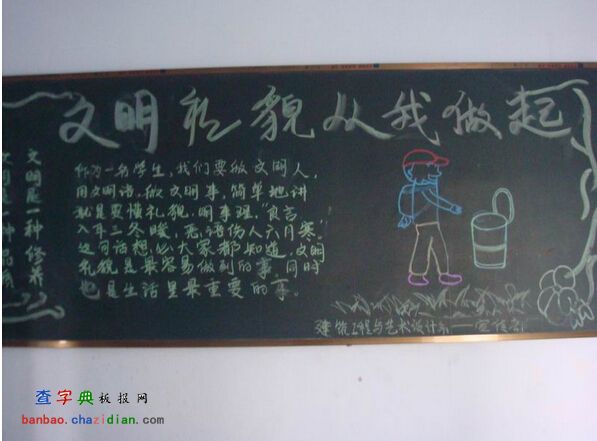 文明礼貌从我做起
文明是一种修养
文明是一种品质
作为一名学生，我们要做文明人，
用文明语，做文明事，简单地讲
就是要懂礼貌，明事理，"良言
入耳三冬暖，恶语伤人六月寒"
这句话想必大家都知道，文明
礼貌是最容易做到的事，同时
也是生活里最重要的事。
建筑工程与艺术设计系——宣传部
查字典板报网
banbao.chazidian.com